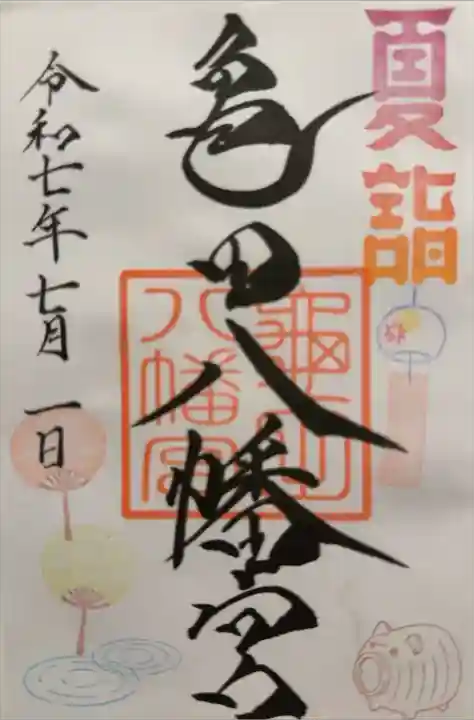 夏詣
亀田八幡宮
八幡宮
令和七年七月一日